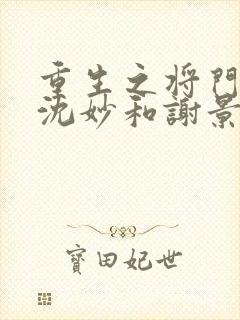 重生之将门
沈妙和謝景
寶田妃世